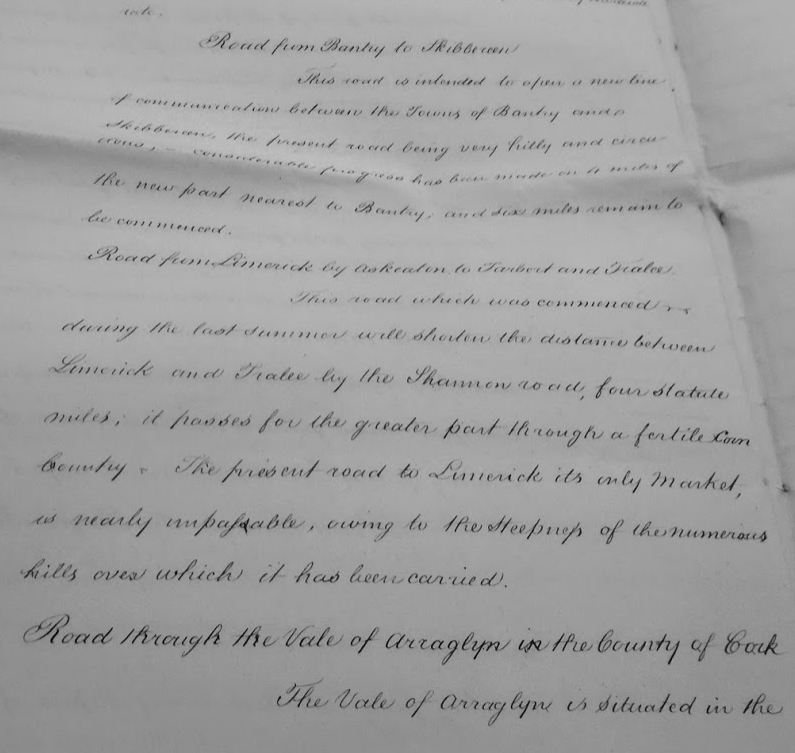 rate.
Road from Bantry to Skibbereen
This road is intended to open a new line
of communication between the Towns of Bantry and
Skibbereen, the present road being very hilly and circu-
itous, – considerable progress has been made on 4 miles of
the new part nearest to Bantry, and six miles remain to
be commenced.
Road from Limerick by Askeaton to Tarbert and Tralee.
This road which was commenced
during the last summer will shorten the distance between
Limerick and Tralee by the Shannon road, four statute
miles; it passes for the greater part through a fertile Corn
Country. The present road to Limerick its only Market,
is nearly impassable, owing to the steepness of the numerous
hills over which it has been carried.
Road through the Vale of Arraglyn in the County of Cork
The Vale of Arraglyn is situated in the